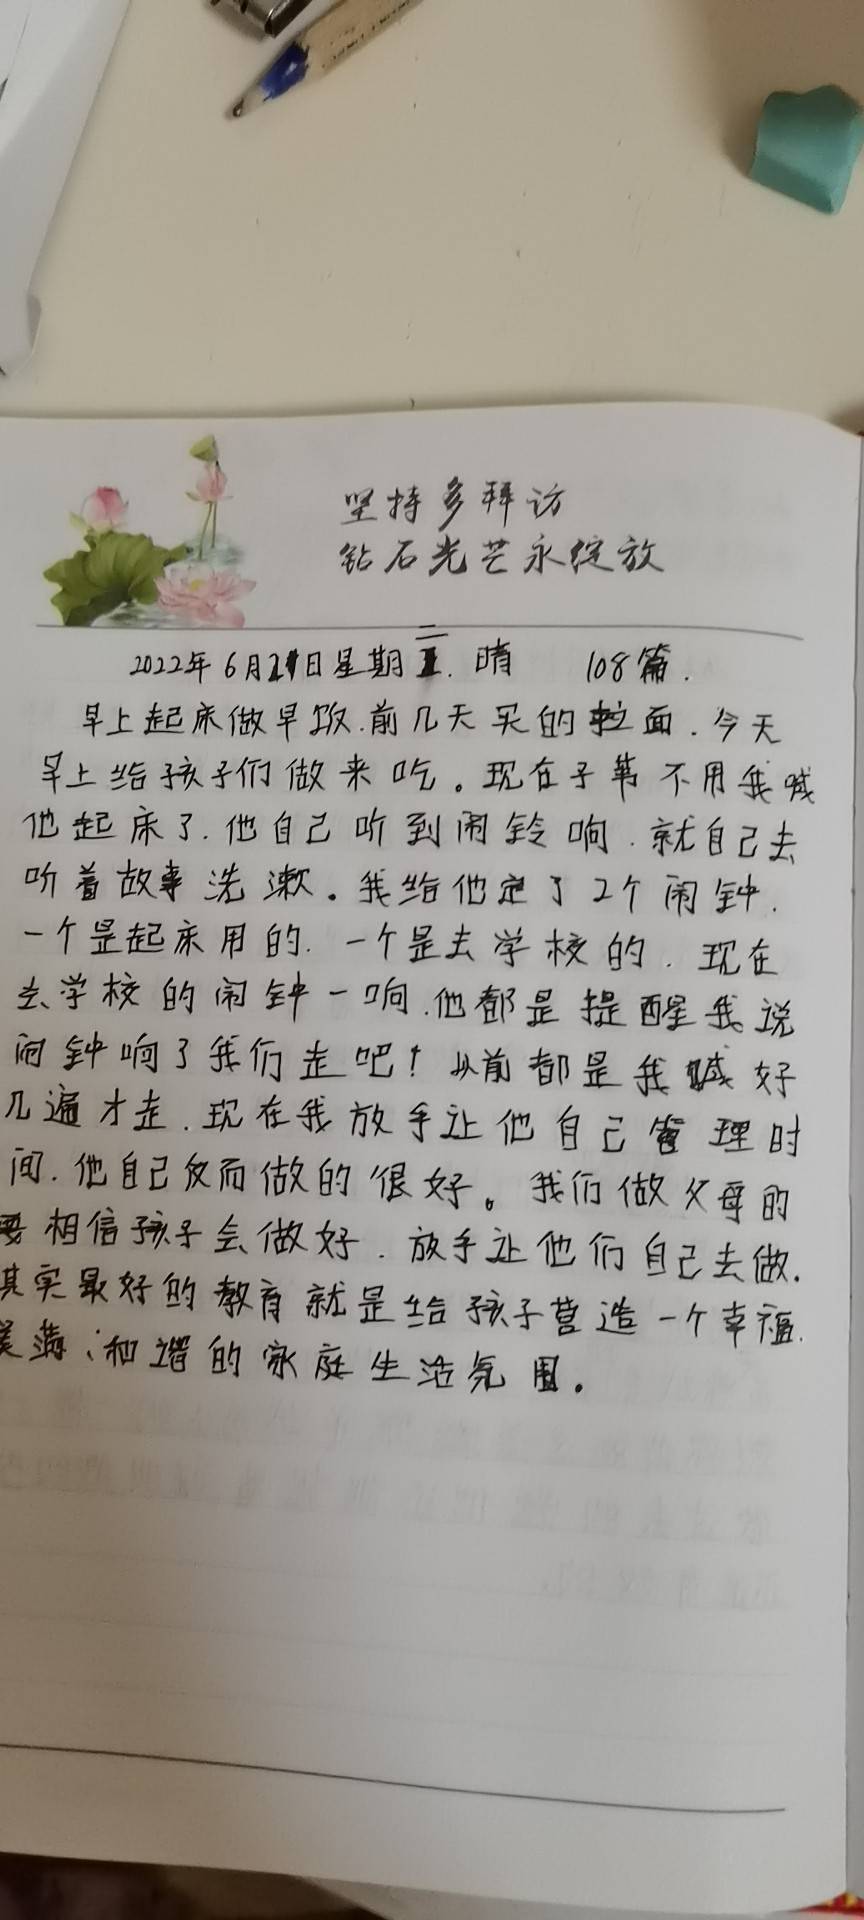 坚持多拜访
钻石光芒永绽放
2022年6月21日星期二. 晴 108篇.
早上起床做早饭.前几天买的拉面.今天
早上给孩子们做来吃。现在子苇不用我喊
他起床了.他自己听到闹铃响.就自己去
听着故事洗漱。我给他定了2个闹钟.
一个是起床用的.一个是去学校的.现在
去学校的闹钟一响.他都是提醒我说
闹钟响了我们走吧!以前都是我喊好
几遍才走.现在我放手让他自己管理时
间.他自己反而做的很好。我们做父母的
要相信孩子会做好.放手让他们自己去做.
其实最好的教育就是给孩子营造一个幸福.
美满、和谐的家庭生活氛围。